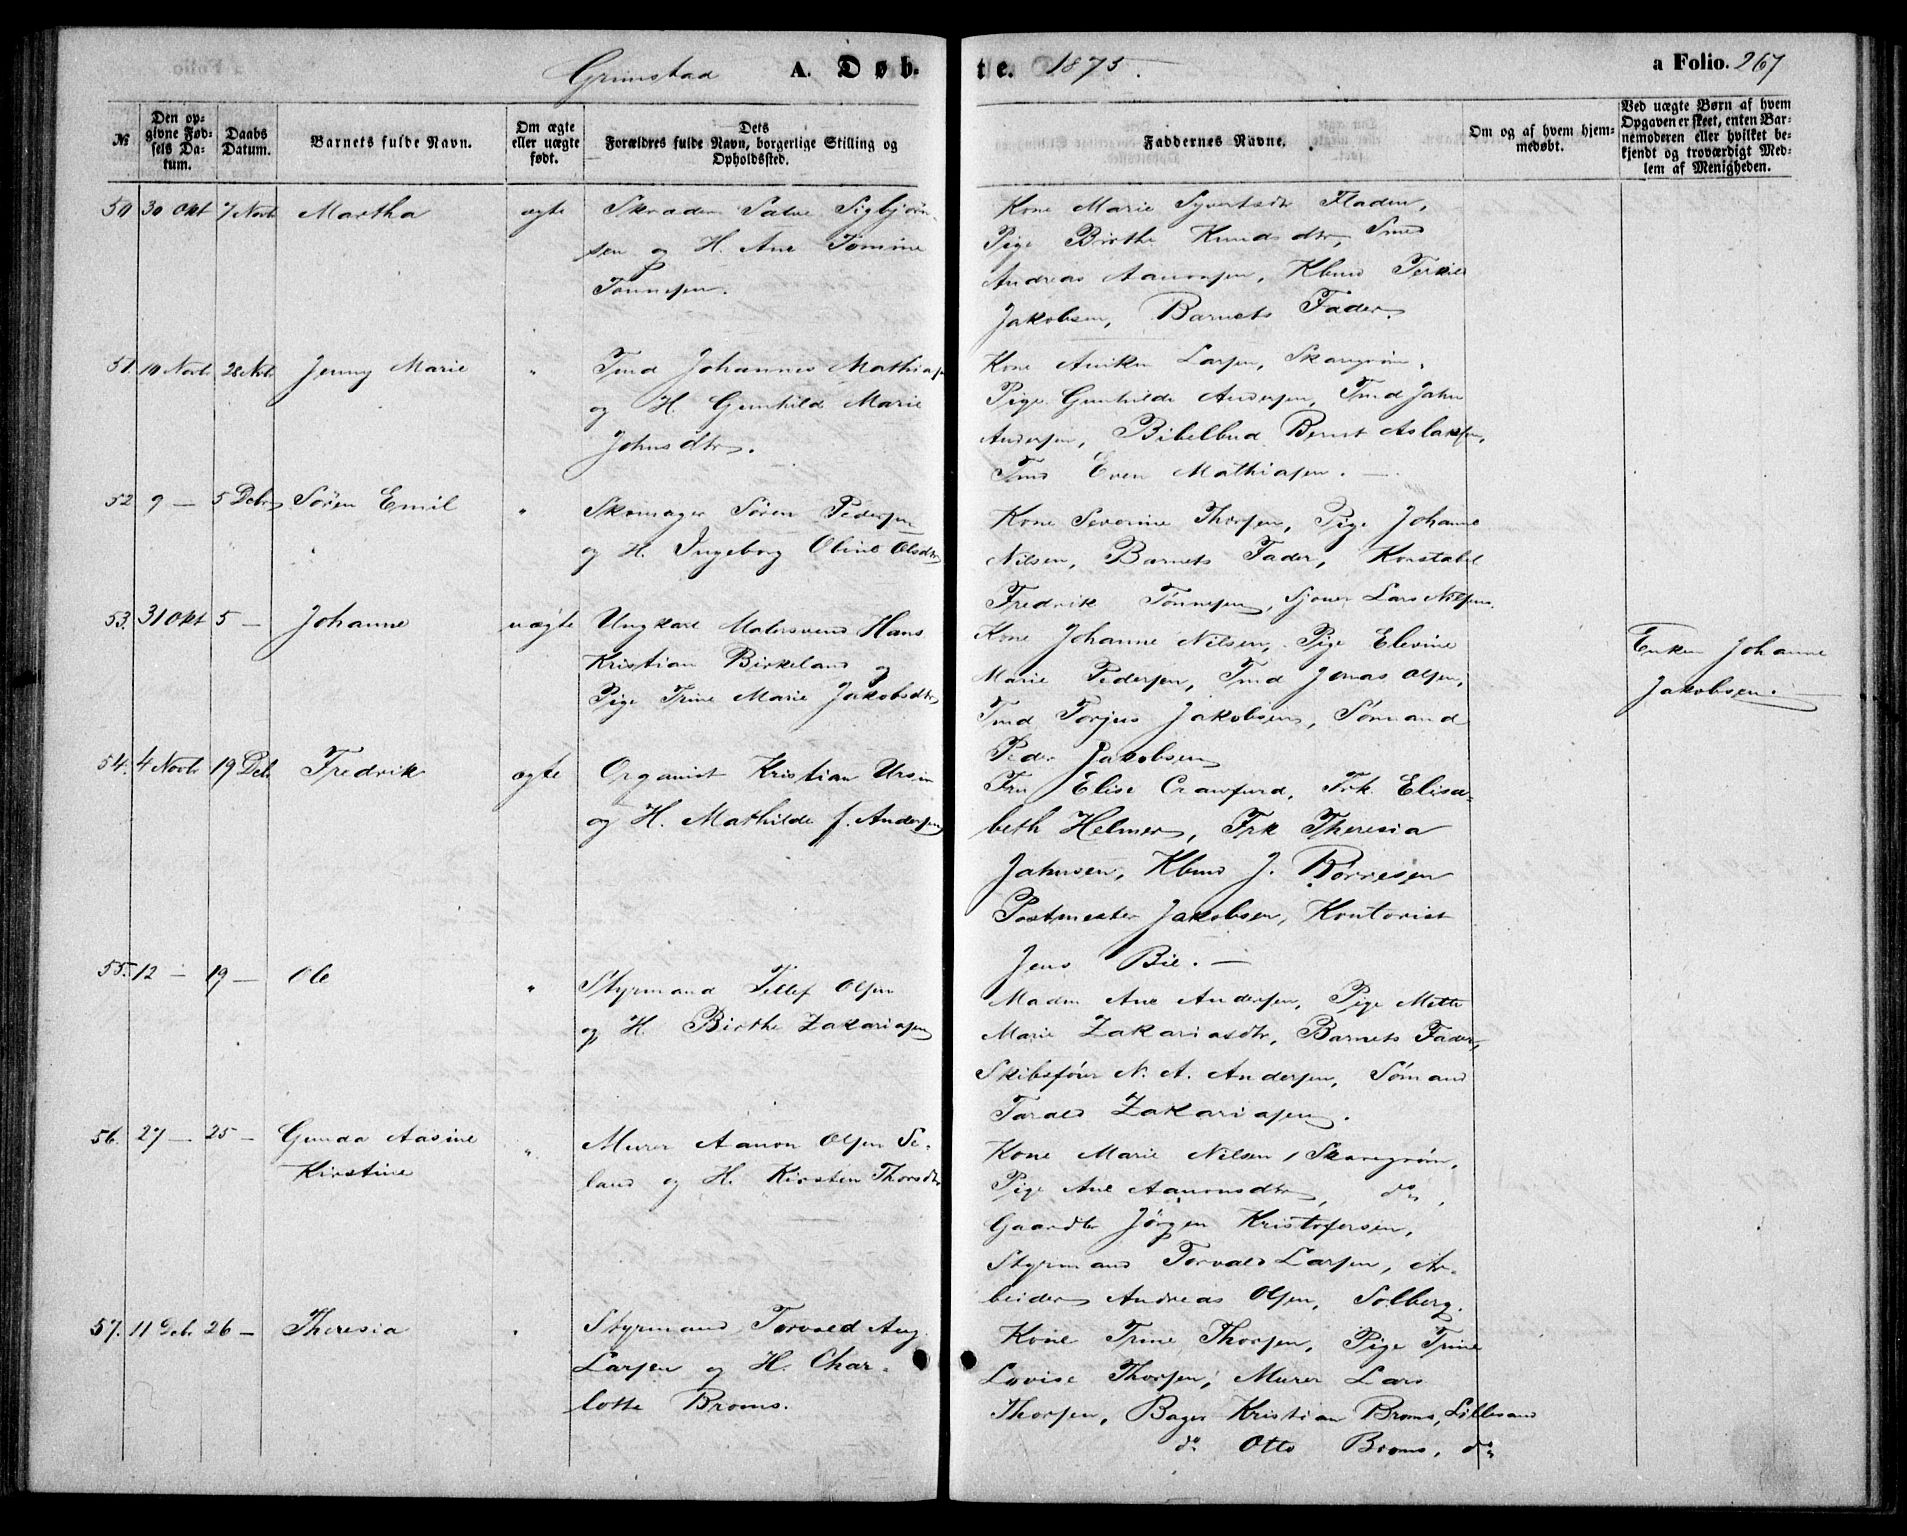 Grimstad A. Døb-te. 1875. a Folio. 267
№
Den op-
givne Fød-
sels Da-
tum.
Daabs
Datum.
Barnets fulde Navn.
Om ægte
eller uægte
født.
Dets
Forældres fulde Navn, borgerlige Stilling og
Opholdssted.
Faddernes Navne.
Om og af hvem hjem-
medøbt.
Ved uægte Børn af hvem
Opgaven er skeet, enten Bar-
nemoderen eller hvilket be-
kjendt og troværdigt Med-
lem af Menigheden.
50 30 Okt 7 Novb Martha ægte Skræder Salve Sigbjørn-
sen og H. Ane Tomine
Tønnesen.
Kone Marie Syvertsdtr Fladen,
Pige Birthe Knudsdtr, Smed
Andreas Aanonsen, Kbmd Terkel
Jakobsen, Barnets Fader.
51. 10 Novb 28 Novb Jenny Marie " Tmd Johannes Mathiasen
og H. Gunhild Marie
Johnsdtr.
Kone Aniken Larsen, Skaregrøm,
Pige Gunhilde Andersen, Tmd John
Andersen, Bibelbud Bernt Aslaksen,
Tmd Even Mathiasen. —
52 9 — 5 Debr Søren Emil " Skomager Søren Pedersen
og H. Ingeborg Oline Olsdtr
Kone Severine Thorsen, Pige Johanne
Nilsen, Barnets Fader, Konstabel
Fredrik Tønnesen, Sjouer Lars Nilsen.
53. 31 Okt 5 — Johanne uægte Ungkarl Malersvend Hans
Kristian Birkeland og
Pige Trine Marie Jakobsdtr
Kone Johanne Nilsen, Pige Elevine
Marie Pedersen, Tmd Jonas Olsen,
Tmd Torjus Jakobsen, Sømand
Peder Jakobsen
Enken Johanne
Jakobsen. —
54. 4 Novb 19 Deb. Fredrik ægte Organist Kristian Ursin
og H. Mathilde f. Andersen
Fru Elise Crawfurd, Frk. Elisa-
beth Helmer, Frk Theresia
Jahnsen, Kbmd J. Børresen
Postmester Jakobsen, Kontorist
Jens Bie. —
55. 12 — 19 — Ole " Styrmand Tellef Olsen
og H. Birthe Zakariasen
Madm Ane Andersen, Pige Mette
Marie Zakariasdtr, Barnets Fader,
Skibsfører N. A. Andersen, Sømand
Tarald Zakariasen.
56. 27 — 25 — Gunda Aasine
Kirstine
" Murer Aanon Olsen Se-
land og H. Kirsten Thorsdtr
Kone Marie Nilsen, Skaregrøm,
Pige Ane Aanonsdtr, do,
Gaardbr Jørgen Kristofersen,
Styrmand Torvald Larsen, Ar-
beider Andreas Olsen, Solberg.
57. 11 Deb. 26 — Theresia " Styrmand Torvald Aug.
Larsen og H. Char-
lotte Broms.
Kone Trine Thorsen, Pige Trine
Lovise Thorsen, Murer Lars
Thorsen, Bager Kristian Broms, Lillesand
do Otto Broms, do